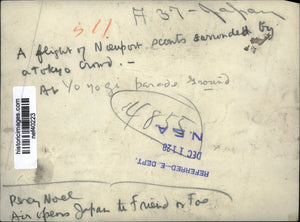 A 37 - Japan
A flight of Nieuport scouts surrounded by
a Tokyo crowd. -
At Yoyogi parade ground
4855
N E A
DEC 11 28
REFERRED-E. DEPT.
historicimages.com
nef40223
Percy Noel
Air opens Japan to Friend or Foe